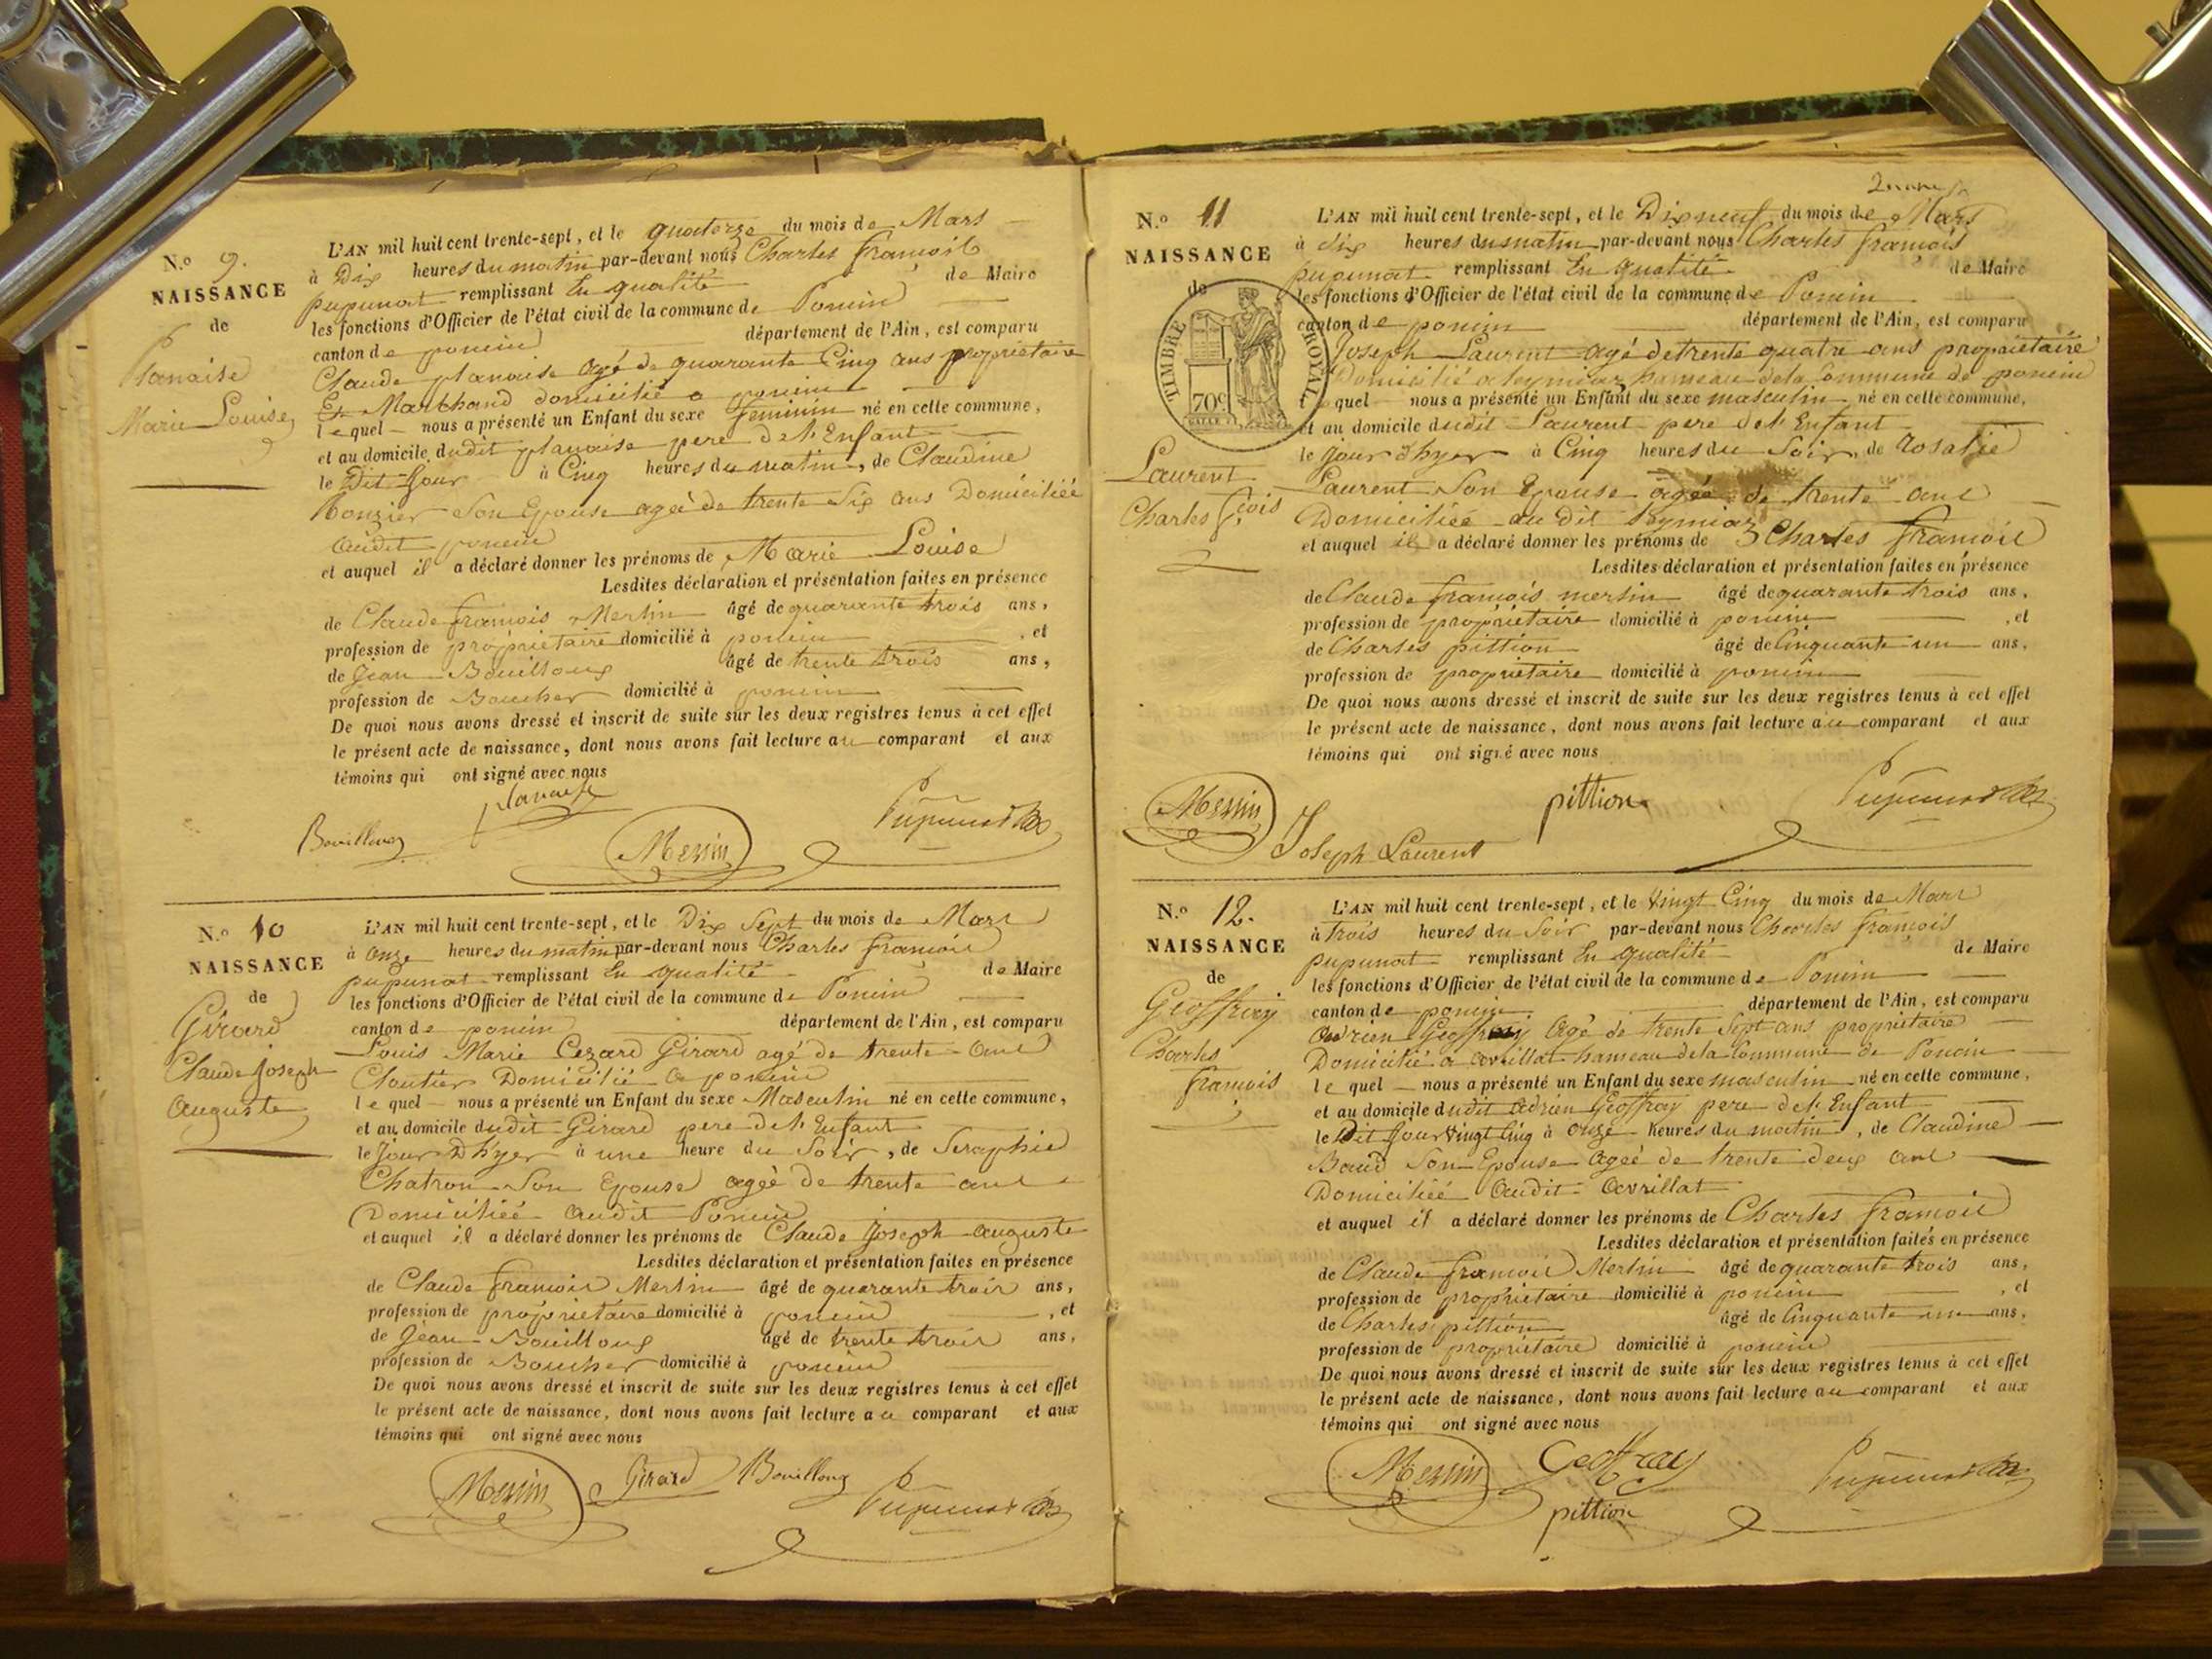 N.o 9.
NAISSANCE
de
Planaise
Marie Louise
L'AN mil huit cent trente-sept, et le quatorze du mois de Mars
à Dix heures du matin par-devant nous Charles françois
pupunat remplissant En qualité de Maire
les fonctions d'Officier de l'état civil de la commune de Poncin
canton de poncin département de l'Ain, est comparu
Claude planaise agé de quarante Cinq ans propriétaire
Et Marchand domicilié a poncin
lequel nous a présenté un Enfant du sexe feminin né en cette commune,
et au domicile dudit planaise pere de l'Enfant
le Dit Jour à Cinq heures du matin, de Claudine
son Epouse ageé de trente Six ans Domiciliéé
audit poncin
et auquel il a déclaré donner les prénoms de Marie Louise
Lesdites déclaration et présentation faites en présence
de Claude françois Merlin âgé de quarante trois ans,
profession de propriétaire domicilié à poncin , et
de Jean Bouilloux âgé de trente trois ans,
profession de Boucher domicilié à poncin
De quoi nous avons dressé et inscrit de suite sur les deux registres tenus à cet effet
le présent acte de naissance, dont nous avons fait lecture au comparant et aux
témoins qui ont signé avec nous
planaise
Bouilloux Merlin Pupunat
N.o 10
NAISSANCE
de
Girard
Claude Joseph
Auguste
L'AN mil huit cent trente-sept, et le Dix Sept du mois de Mars
à onze heures du matin par-devant nous Charles françois
pupunat remplissant En qualité de Maire
les fonctions d'Officier de l'état civil de la commune de Poncin
canton de poncin département de l'Ain, est comparu
Louis Marie Cezard Girard agé de trente ans
Cloutier Domicilié a poncin
lequel nous a présenté un Enfant du sexe Masculin né en cette commune,
et au domicile dudit Girard pere de l'Enfant
le Jour D'hyer à une heure du Soir, de Seraphie
Chatron Son Epouse ageé de trente ans
Domiciliéé audit Poncin
et auquel il a déclaré donner les prénoms de Claude Joseph auguste
Lesdites déclaration et présentation faites en présence
de Claude françois Merlin âgé de quarante trois ans,
profession de propriétaire domicilié à poncin , et
de Jean Bouilloux âgé de trente trois ans,
profession de Boucher domicilié à poncin
De quoi nous avons dressé et inscrit de suite sur les deux registres tenus à cet effet
le présent acte de naissance, dont nous avons fait lecture au comparant et aux
témoins qui ont signé avec nous
Merlin Girard Bouilloux Pupunat
N.o 11
NAISSANCE
de
TIMBRE ROYAL
70c
Laurent
Charles fçois
L'AN mil huit cent trente-sept, et le Dix neuf du mois de Mars
à dix heures du matin par-devant nous Charles françois
pupunat remplissant En qualité de Maire
les fonctions d'Officier de l'état civil de la commune de Poncin
canton de poncin département de l'Ain, est comparu
Joseph Laurent agé de trente quatre ans propriétaire
Domicilié a leymiaz hameau de la Commune de poncin
lequel nous a présenté un Enfant du sexe masculin né en cette commune,
et au domicile dudit Laurent pere de l'Enfant
le jour d'hyer à Cinq heures du Soir, de rosalie
Laurent Son Epouse ageé de trente ans
Domiciliéé au dit leymiaz
et auquel il a déclaré donner les prénoms de Charles françois
Lesdites déclaration et présentation faites en présence
de Claude françois merlin âgé de quarante trois ans,
profession de propriétaire domicilié à poncin , et
de Charles pittion âgé de Cinquante un ans,
profession de propriétaire domicilié à poncin
De quoi nous avons dressé et inscrit de suite sur les deux registres tenus à cet effet
le présent acte de naissance, dont nous avons fait lecture au comparant et aux
témoins qui ont signé avec nous
Merlin pittion Pupunat
Joseph Laurent
N.o 12.
NAISSANCE
de
Geoffray
Charles
francois
L'AN mil huit cent trente-sept, et le Vingt Cinq du mois de Mars
à trois heures du Soir par-devant nous Charles françois
pupunat remplissant En qualité de Maire
les fonctions d'Officier de l'état civil de la commune de Poncin
canton de poncin département de l'Ain, est comparu
adrien Geoffray agé de trente Sept ans propriétaire
Domicilié a avrillat hameau de la Commune de Poncin
lequel nous a présenté un Enfant du sexe masculin né en cette commune,
et au domicile dudit adrien Geoffray pere de l'Enfant
le Dit Jour vingt Cinq à onze heures du matin, de Claudine
Baud Son Epouse ageé de trente deux ans
Domiciliéé audit avrillat
et auquel il a déclaré donner les prénoms de Charles françois
Lesdites déclaration et présentation faites en présence
de Claude françois Merlin âgé de quarante trois ans,
profession de propriétaire domicilié à poncin , et
de Charles pittion âgé de Cinquante un ans,
profession de propriétaire domicilié à poncin
De quoi nous avons dressé et inscrit de suite sur les deux registres tenus à cet effet
le présent acte de naissance, dont nous avons fait lecture au comparant et aux
témoins qui ont signé avec nous
Merlin Geoffray Pupunat
pittion